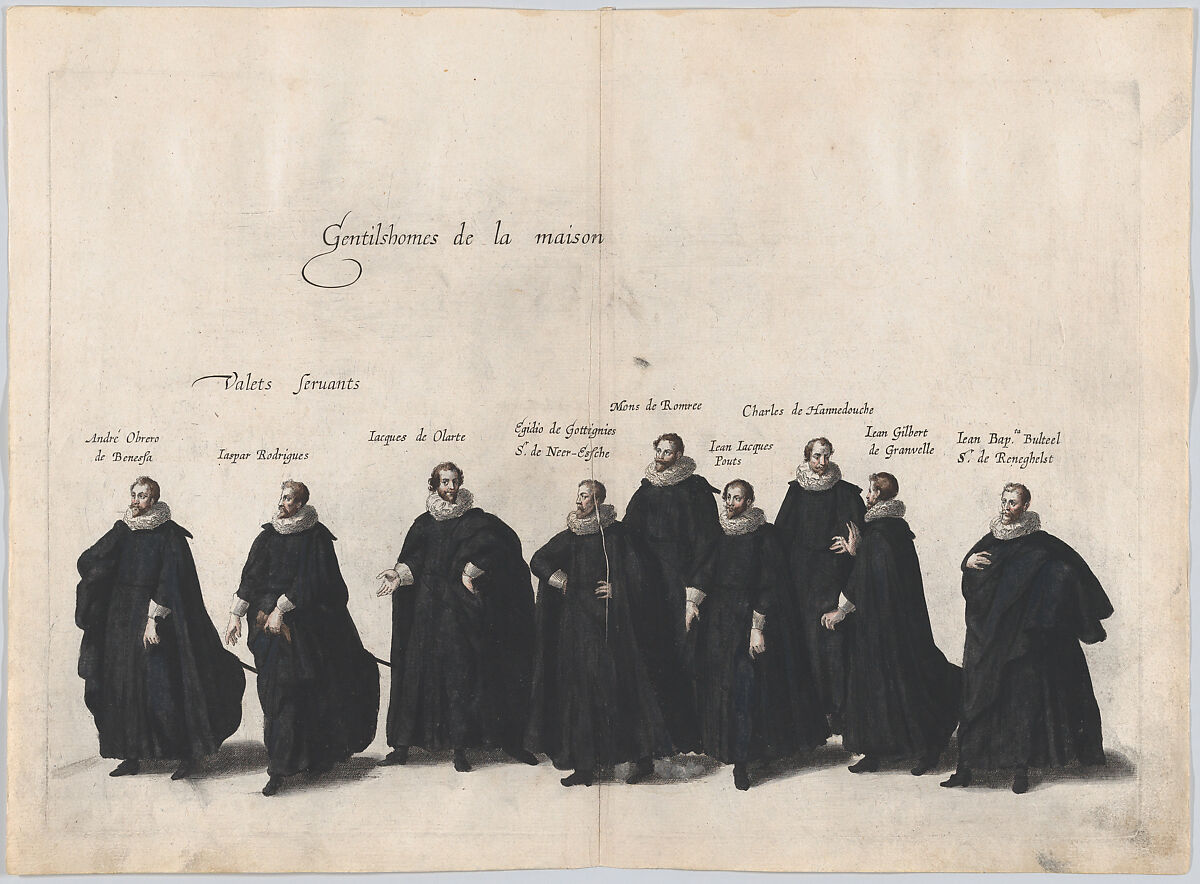 Gentilshomes de la maison
Valets seruants
André Obrero
de Beneesa
Iaspar Rodrigues
Iacques de Olarte
Egidio de Gottignies
Sr. de Neer-Essche
Mons de Romree
Iean Iacques
Pouts
Charles de Hannedouche
Iean Gilbert
de Granvelle
Iean Bap.ta Bulteel
Sr. de Reneghelst